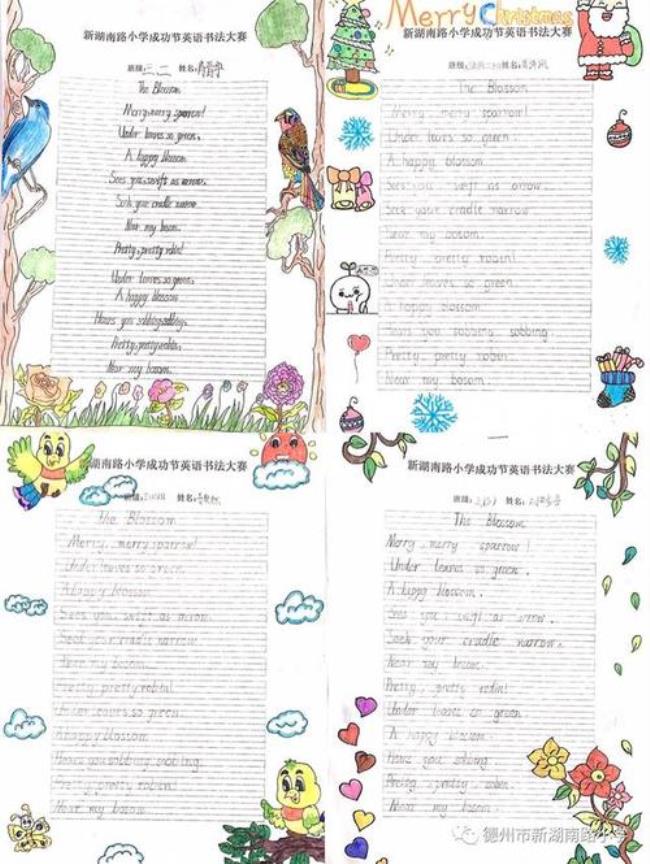 新湖南路小学成功节英语书法大赛
班级: 三、二 姓名:
The Blossom
Merry, merry sparrow!
Under leaves so green,
A happy blossom
Sees you, swift as arrow,
Seek your cradle narrow
Near my bosom.
Pretty, pretty robin!
Under leaves so green,
A happy blossom
Hears you sobbing, sobbing,
Pretty, pretty robin,
Near my bosom.
Merry Christmas
新湖南路小学成功节英语书法大赛
班级: 姓名:
The Blossom
Merry, merry sparrow!
Under leaves so green.
A happy blossom
Sees you swift as arrow.
Seek your cradle narrow
Near my bosom.
Pretty, pretty robin!
Under leaves so green
A happy blossom
Hears you sobbing sobbing
Pretty, pretty robin
Near my bosom.
湖南路小学成功节英语书法大赛
班级: 姓名:
The Blossom
Merry, merry sparrow!
Under leaves so green.
A happy blossom
Sees you, swift as arrow
Seek your cradle narrow
Near my bosom.
Pretty, pretty robin!
Under leaves so green.
A happy blossom
Hears you sobbing, sobbing.
Pretty pretty robin!
Near my bosom
新湖南路小学成功节英语书法大赛
班级: 姓名:
The Blossom
Merry, merry sparrow!
Under leaves so green.
A happy blossom.
Sees you swift as arrow.
Seek your cradle narrow.
Near my bosom.
Pretty, pretty robin!
Under leaves so green.
A happy blossom.
Have you sobbing.
Pretty, pretty robin.
Near my bosom.
德州市新湖南路小学